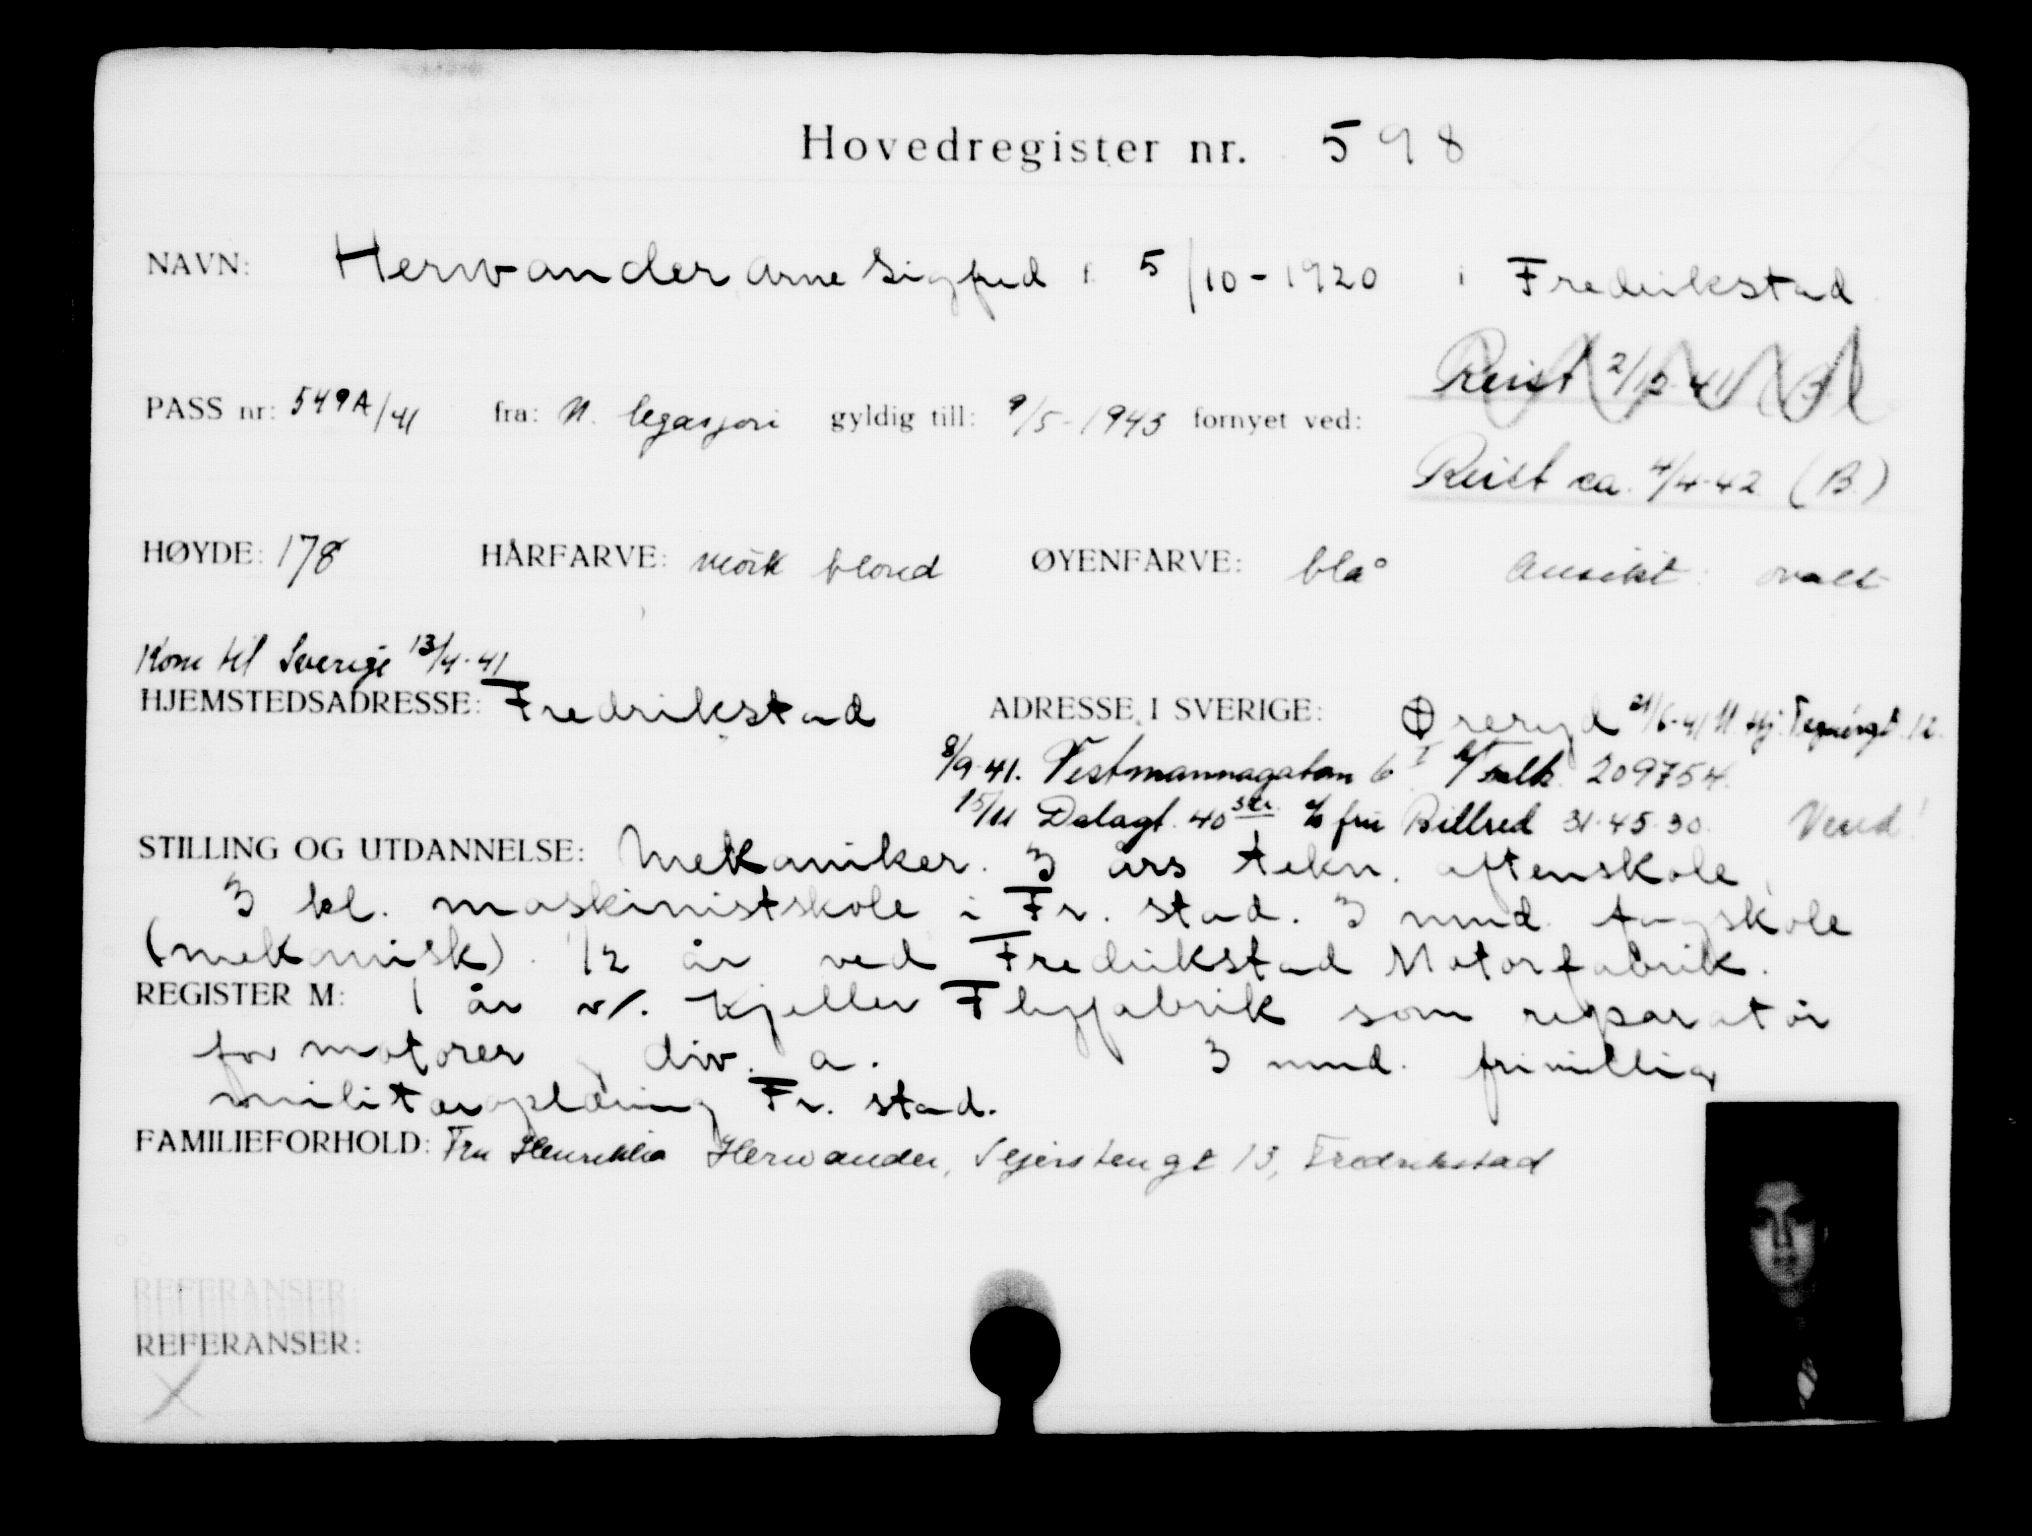 Hovedregister nr. 598
NAVN: Herwander Arne Sigfred f. 5/10-1920 i Fredrikstad
Reist 2/12-41
PASS nr: 549A/41 fra: N. legasjon gyldig till: 9/5-1943 fornyet ved:
Reist ca. 4/4-42 (B.)
HØYDE: 178 HÅRFARVE: mörk blond ØYENFARVE: blå Ansikt: ovalt
Kom til Sverige 13/4-41
HJEMSTEDSADRESSE: Fredrikstad ADRESSE I SVERIGE: Øreryd 21/6-41 Hj. Tegnérgt. 12.
8/9-41. Vestmannagatan 6 I 209754.
15/11 Dalagt. 40 c/o fru Billred 31.45.30. Vend!
STILLING OG UTDANNELSE: Mekaniker. 3 års tekn. aftenskole,
3 kl. maskinistskole i Fr. stad. 3 mnd. fagskole
(mekanisk). 1/2 år ved Fredrikstad Motorfabrik.
REGISTER M: 1 år v/. Kjeller Flyfabrik som reparatör
for motorer, div. a. 3 mnd. frivillig
militæropplæring Fr. stad.
FAMILIEFORHOLD: Fru Herwander, Sejerstengt 13, Fredrikstad
REFERANSER:
REFERANSER: